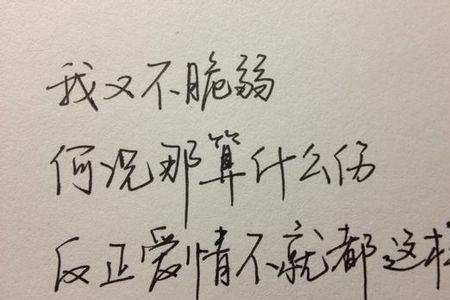 我又不脆弱
何况那算什么伤
反正爱情不就都这样